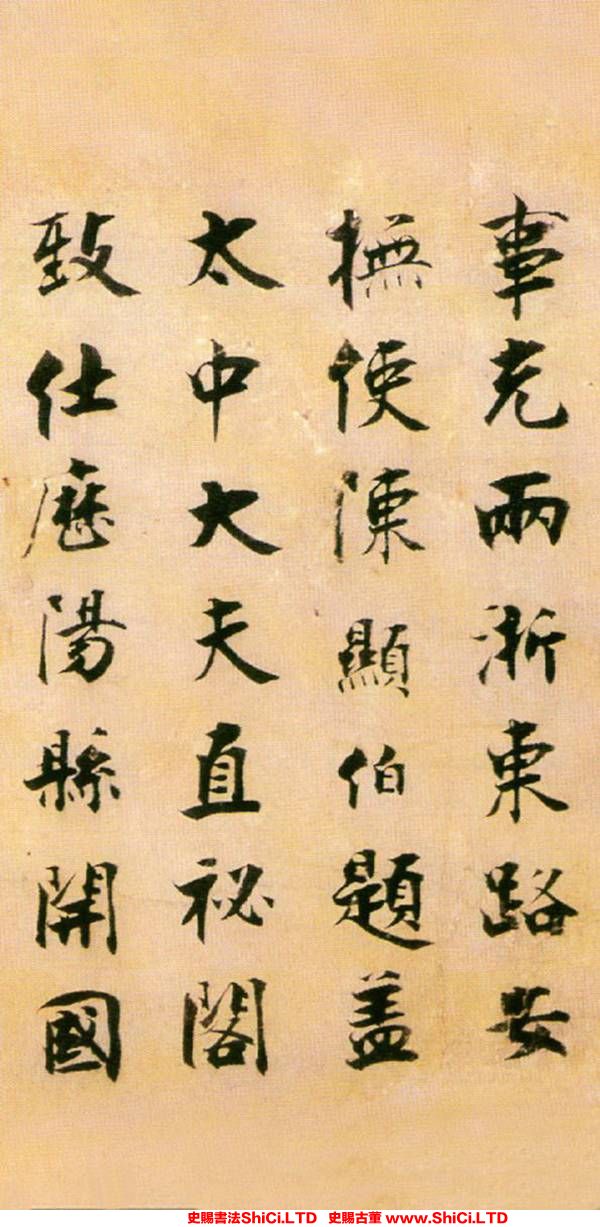 事充兩浙東路安
撫使陳顯伯題蓋
太中大夫直祕閣
致仕歷陽縣開國
史賜書法ShiCi.LTD 史賜古董 www.ShiCi.LTD